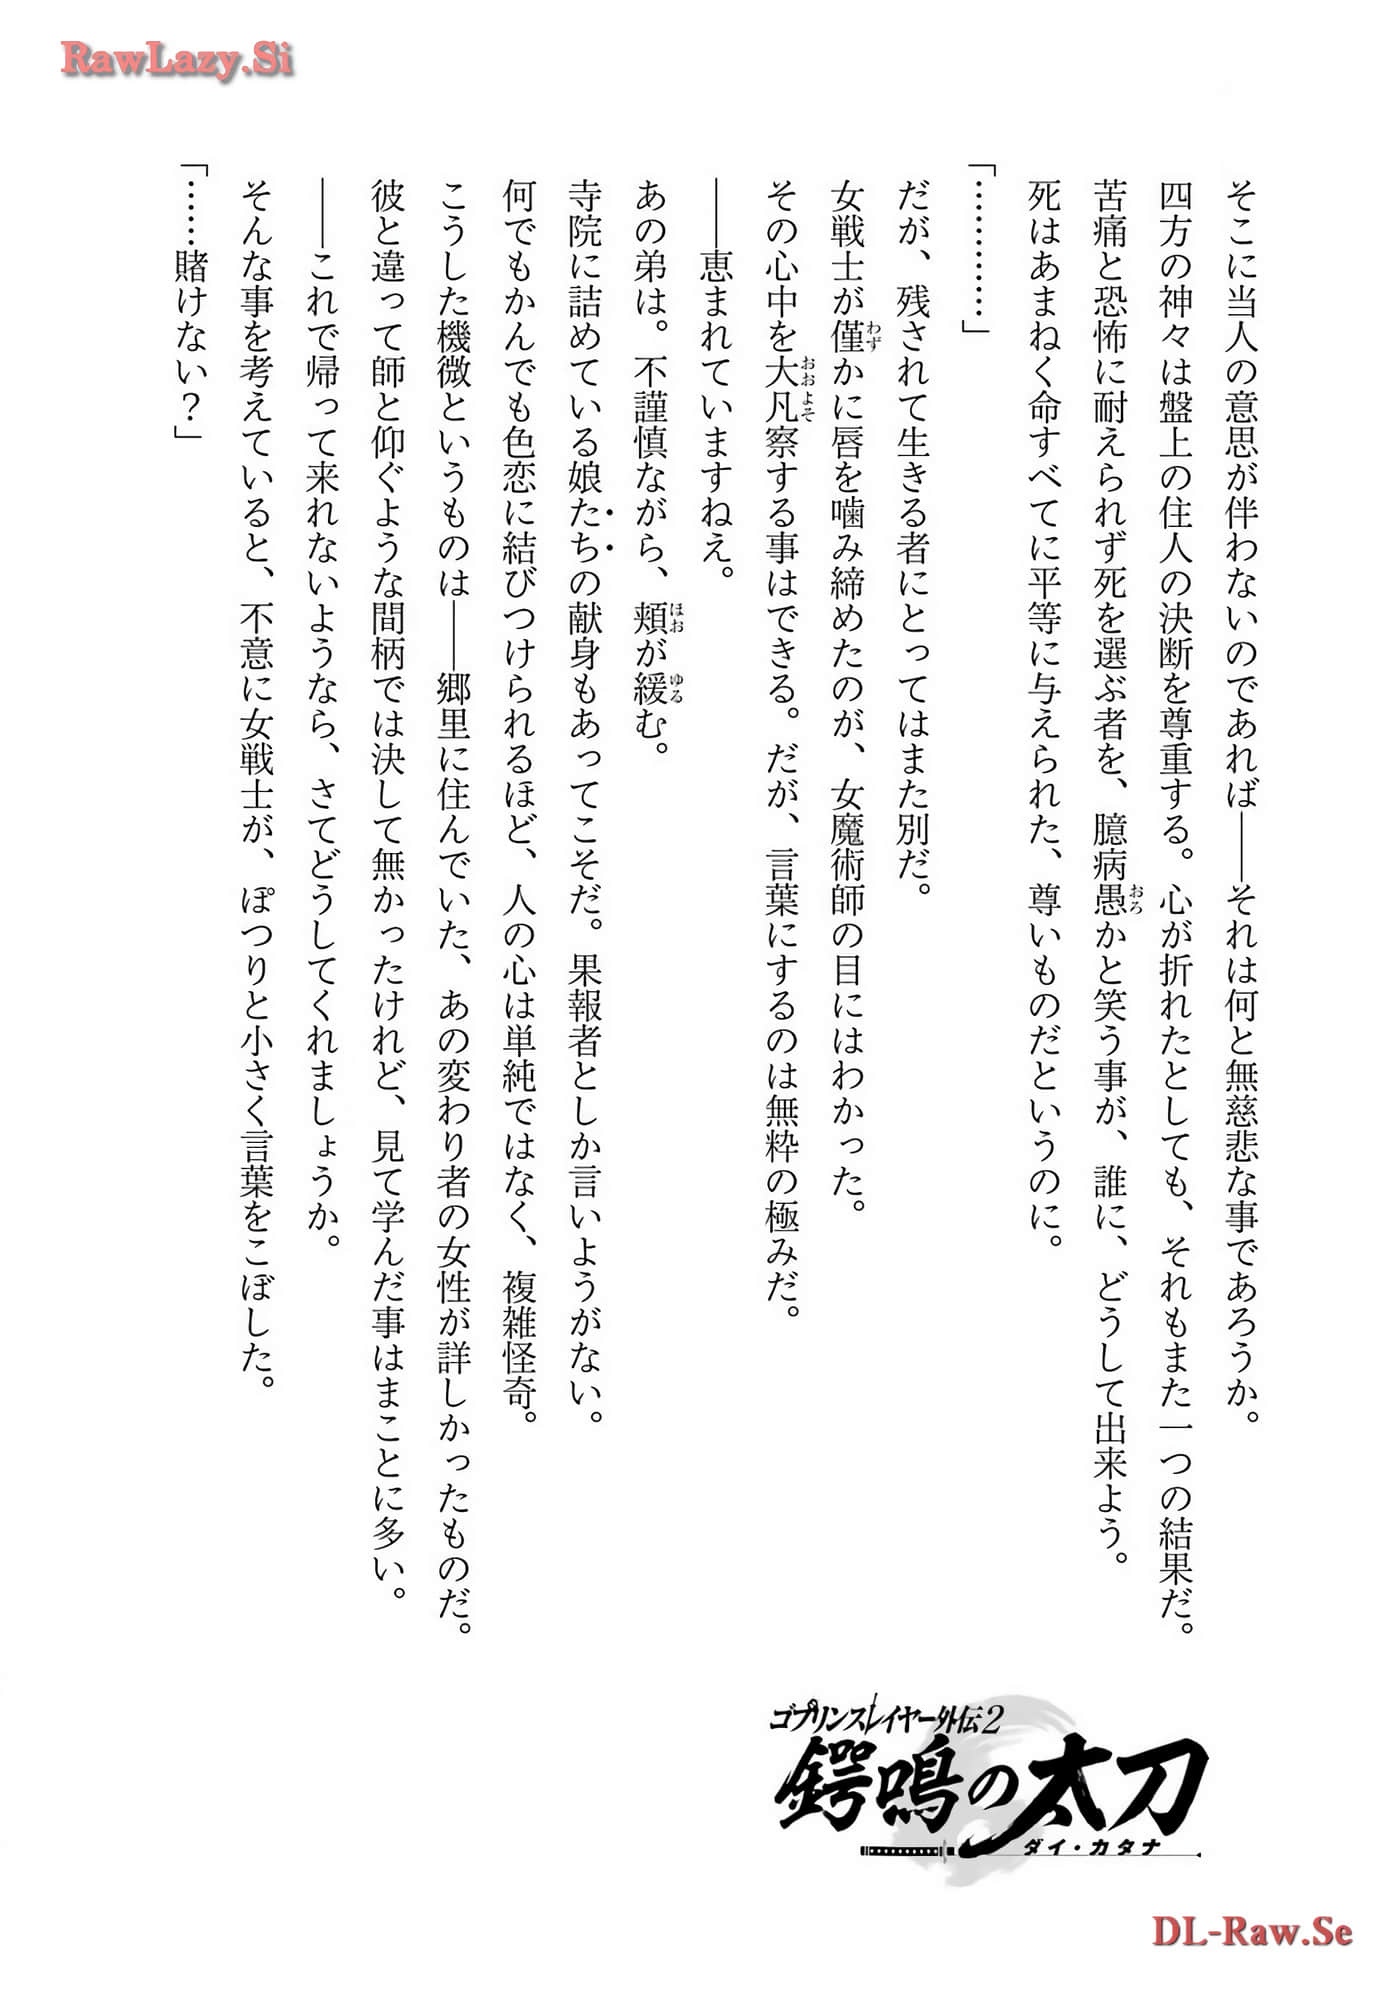 RawLazy.Si
そこに当人の意思が伴わないのであれば――それは何と無慈悲な事であろうか。
四方の神々は盤上の住人の決断を尊重する。心が折れたとしても、それもまた一つの結果だ。
苦痛と恐怖に耐えられず死を選ぶ者を、臆病愚かと笑う事が、誰に、どうして出来よう。
死はあまねく命すべてに平等に与えられた、尊いものだというのに。
「…………」
だが、残されて生きる者にとってはまた別だ。
女戦士が僅かに唇を噛み締めたのが、女魔術師の目にはわかった。
その心中を大凡察する事はできる。だが、言葉にするのは無粋の極みだ。
――恵まれていますねえ。
あの弟は。不謹慎ながら、頬が緩む。
寺院に詰めている娘たちの献身もあってこそだ。果報者としか言いようがない。
何でもかんでも色恋に結びつけられるほど、人の心は単純ではなく、複雑怪奇。
こうした機微というものは――郷里に住んでいた、あの変わり者の女性が詳しかったものだ。
彼と違って師と仰ぐような間柄では決して無かったけれど、見て学んだ事はまことに多い。
――これで帰って来れないようなら、さてどうしてくれましょうか。
そんな事を考えていると、不意に女戦士が、ぽつりと小さく言葉をこぼした。
「……賭けない？」
ゴブリンスレイヤー外伝2
鍔鳴の太刀
ダイ・カタナ
DL-Raw.Se